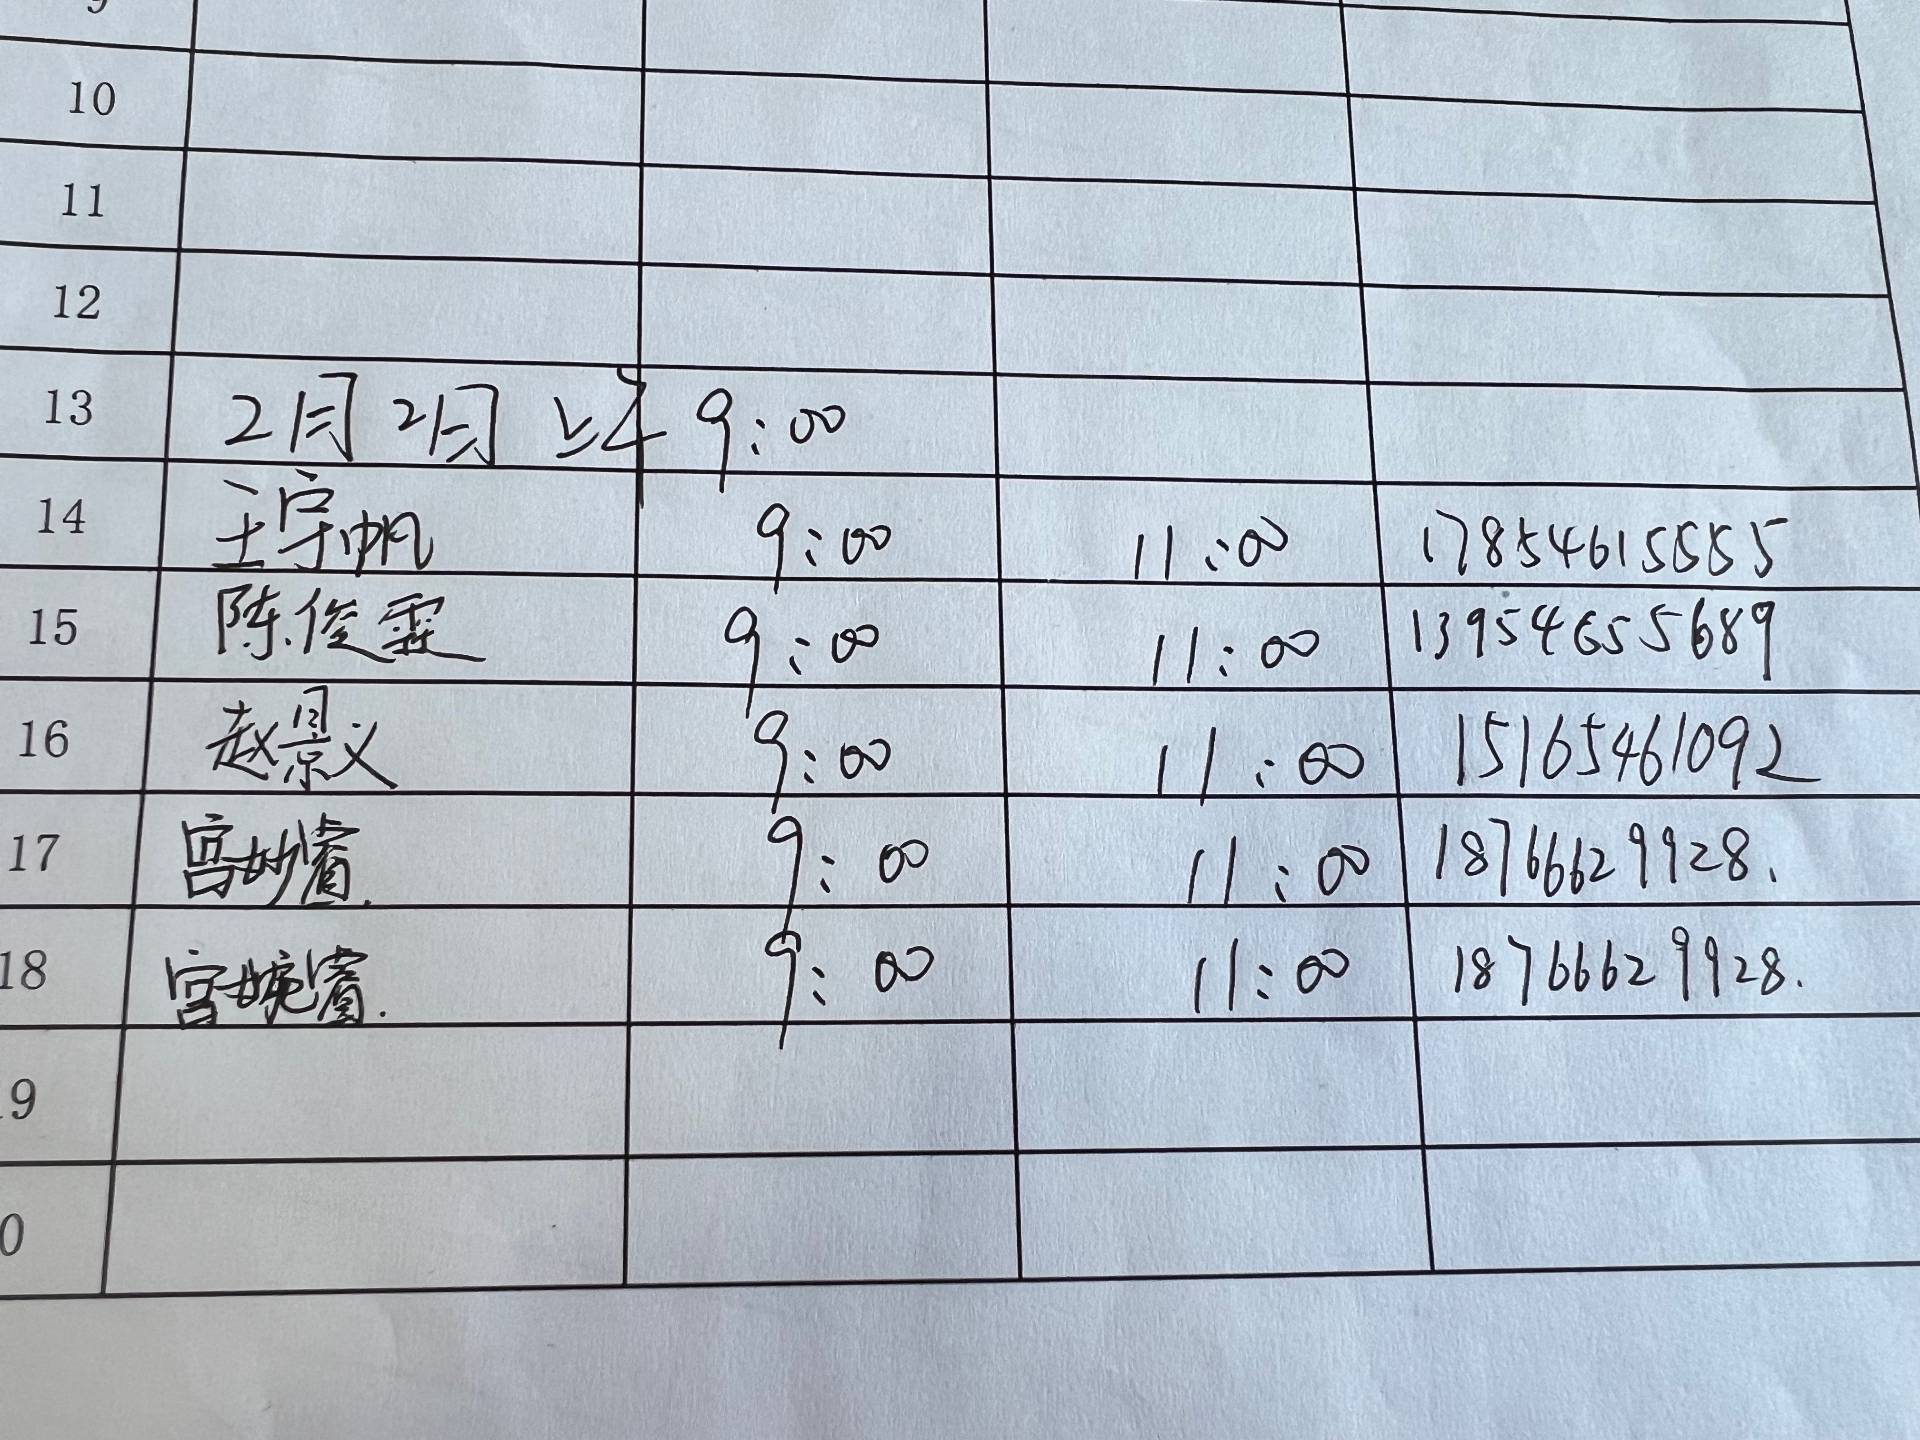 9
10
11
12
13 2月2日 上午 9:00
14 王宇帆 9:00 11:00 17854615555
15 陈俊霖 9:00 11:00 13954655689
16 赵景义 9:00 11:00 15165461092
17 宫妙 9:00 11:00 18766629928.
18 宫婉 9:00 11:00 18766629928.
19
0